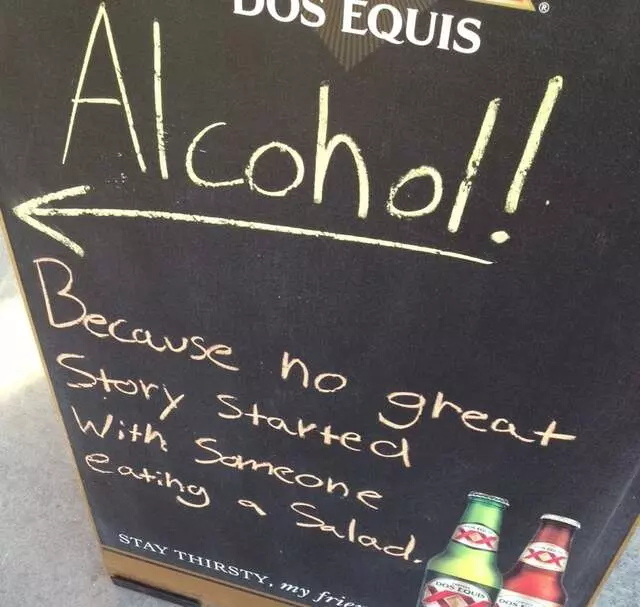 DOS EQUIS
®
Alcohol!
Because no great
Story started
With Someone
eating a Salad.
XX
XX
DOS EQUIS
XX
STAY THIRSTY, my